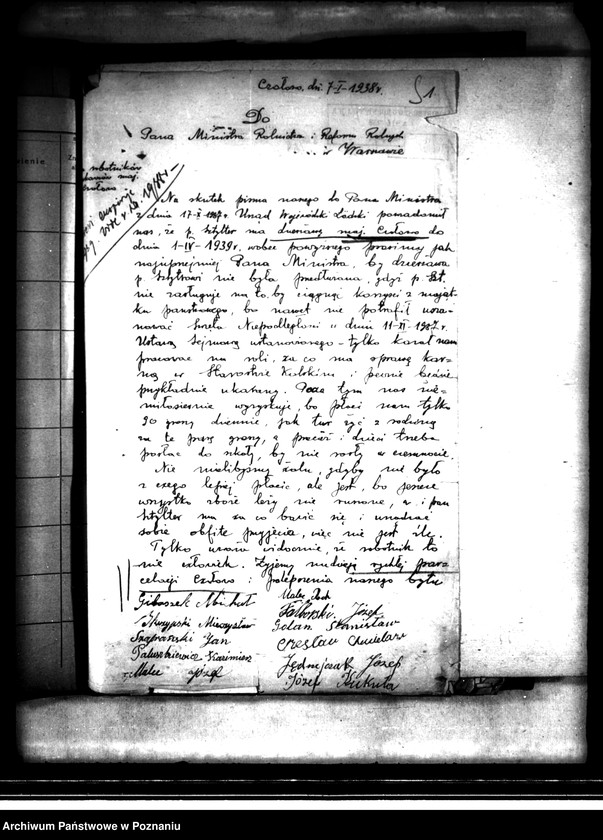 Czołowo, dn. 7-I-1938r.
51
Do
Pana Ministra Rolnictwa i Reform Rolnych
w Warszawie
robotników
maj.
Na skutek pisma naszego do Pana Ministra
z dnia 17-X-1937r. Urząd Wojewódzki Łódzki powiadomił
nas, że p. Sztylter ma dzierżawę maj. Czołowo do
dnia 1-IV-1939r. wobec powyższego prosimy jak
najuprzejmiej Pana Ministra, by dzierżawa
p. Sztyltrowi nie była przedłużana, gdyż p. Szt.
nie zasługuje na to, by ciągnął korzyści z mająt-
ku państwowego, bo nawet nie potrafił usza-
nować święta Niepodległości w dniu 11-XI-1937r.
Ustawą Sejmową ustanowionego - tylko kazał nam
pracować na roli, za co ma sprawę kar-
ną w Starostwie Kolskim i pewnie będzie
przykładnie ukarany. Poza tym nas nie-
miłosiernie wyzyskuje, bo płaci nam tylko
90 groszy dziennie, jak tu żyć z rodziną
za te parę groszy, a przecież i dzieci trzeba
posłać do szkoły, by nie rosły w ciemnocie.
Nie mielibyśmy żalu, gdyby nie było
z czego lepiej płacić, ale jest, bo jeszcze
wszystko zboże leży nie ruszone, a i pan
Sztylter ma za co bawić się i urządzać
sobie obfite przyjęcia, więc nie jest źle.
Tylko uważa widocznie, że robotnik to
nie człowiek. Żyjemy nadzieją rychłej par-
celacji Czołowo i polepszenia naszego bytu
Giboszek Michał
Skrzypski Mieczysław
Szafrański Jan
Paluszkiewicz Kazimierz
Malec Józef
Malec
Falborski Józef
Golan Stanisław
Czesław
Jędrzejczak Józef
Józef Kukuła
Archiwum Państwowe w Poznaniu